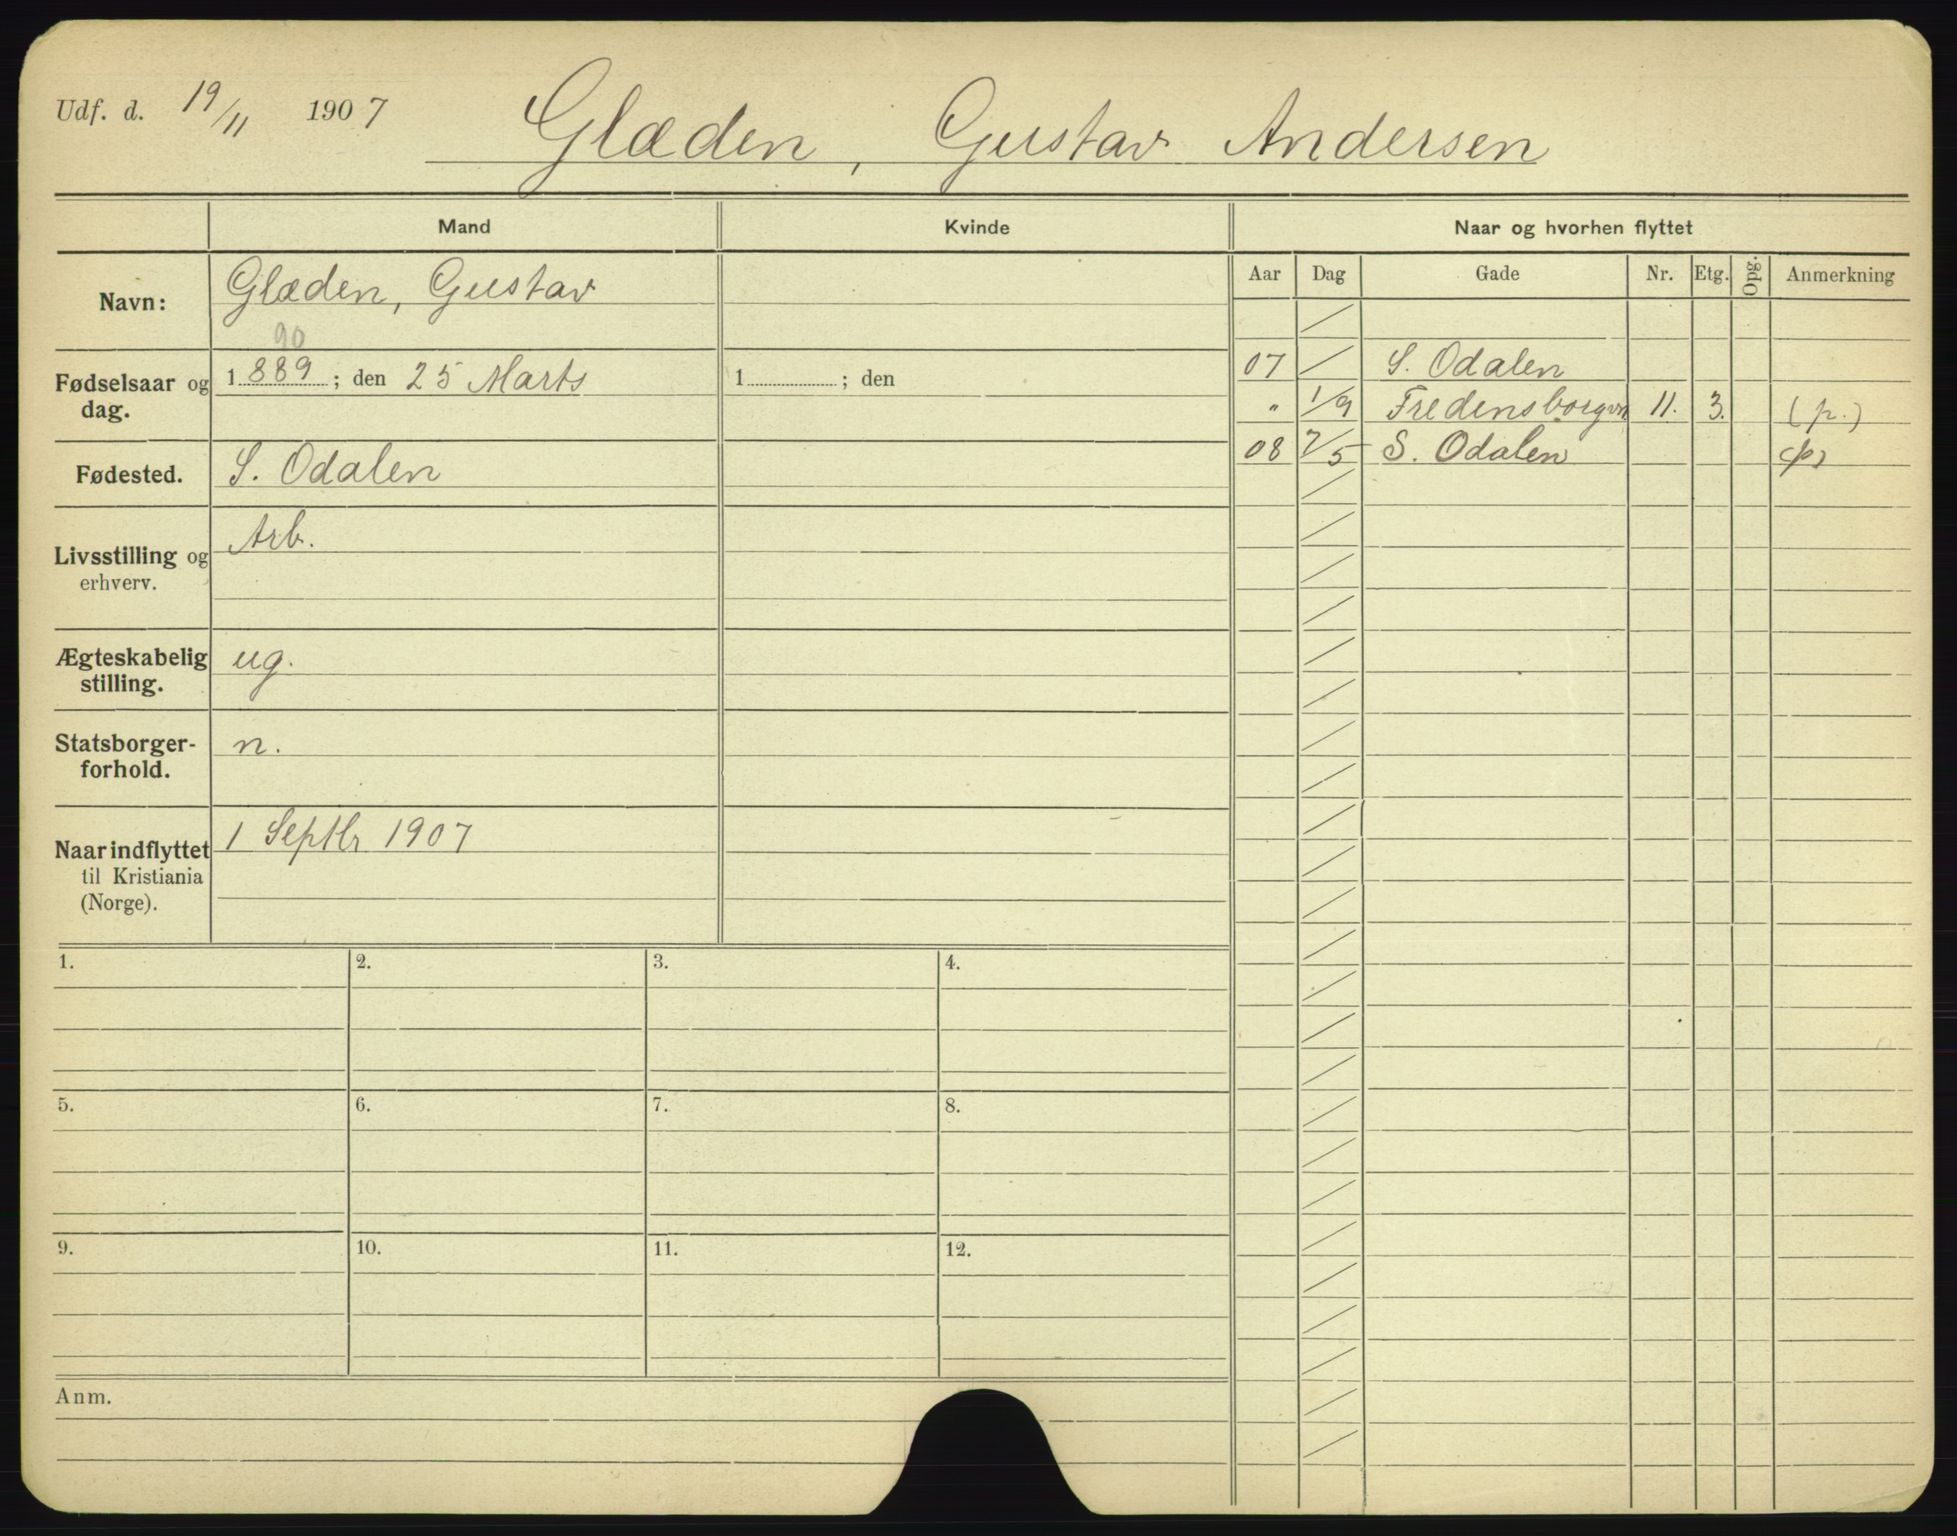 Udf. d. 19/11 1907 Glæden, Gustav Andersen
Mand Kvinde Naar og hvorhen flyttet
Aar Dag Gade Nr. Etg. Opg. Anmerkning
Navn: Glæden, Gustav
90
Fødselsaar og dag. 1889; den 25 Marts 1 ; den
07 S. Odalen
" 1/9 Fredensborgvn 11. 3. (p.)
08 7/5 S. Odalen (p)
Fødested. S. Odalen
Livsstilling og Arb.
erhverv.
Ægteskabelig ug.
stilling.
Statsborger- n.
forhold.
Naar indflyttet 1 Septbr 1907
til Kristiania
(Norge).
1. 2. 3. 4.
5. 6. 7. 8.
9. 10. 11. 12.
Anm.